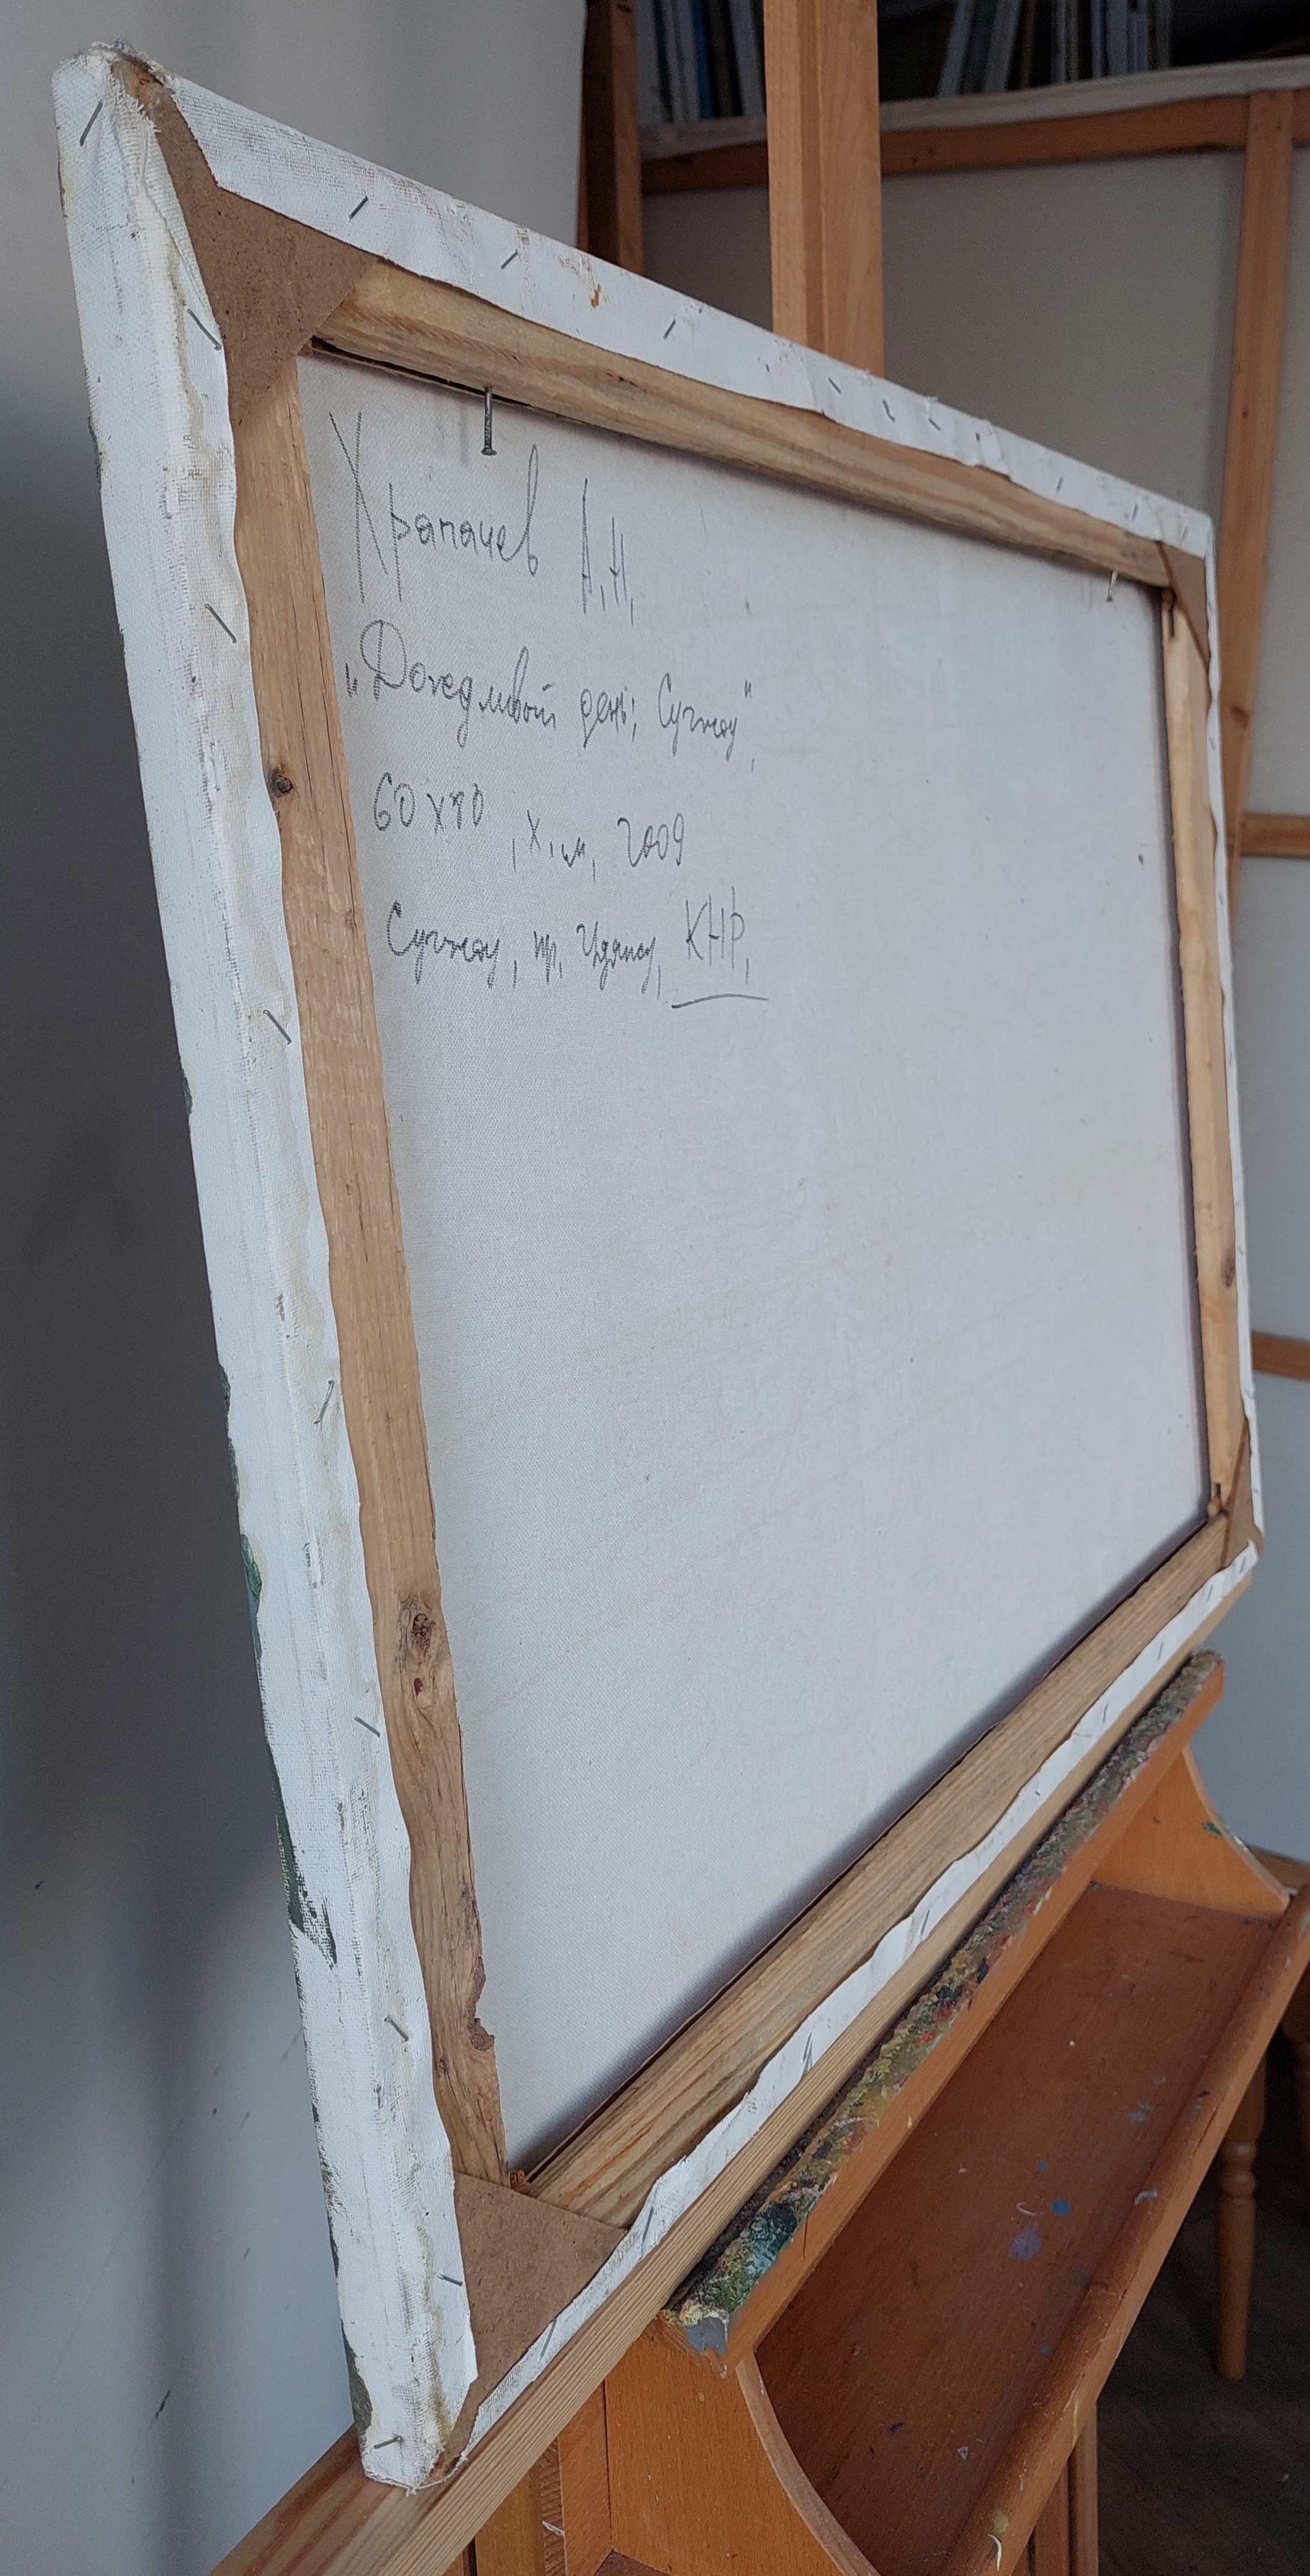 Храпачев А.Н,
"Дождливой день; Сучжоу",
60х80, х.м, 2009
Сучжоу, пр, Цзянсу, КНР,